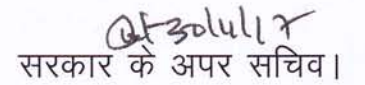 30/4/17
सरकार के अपर सचिव।